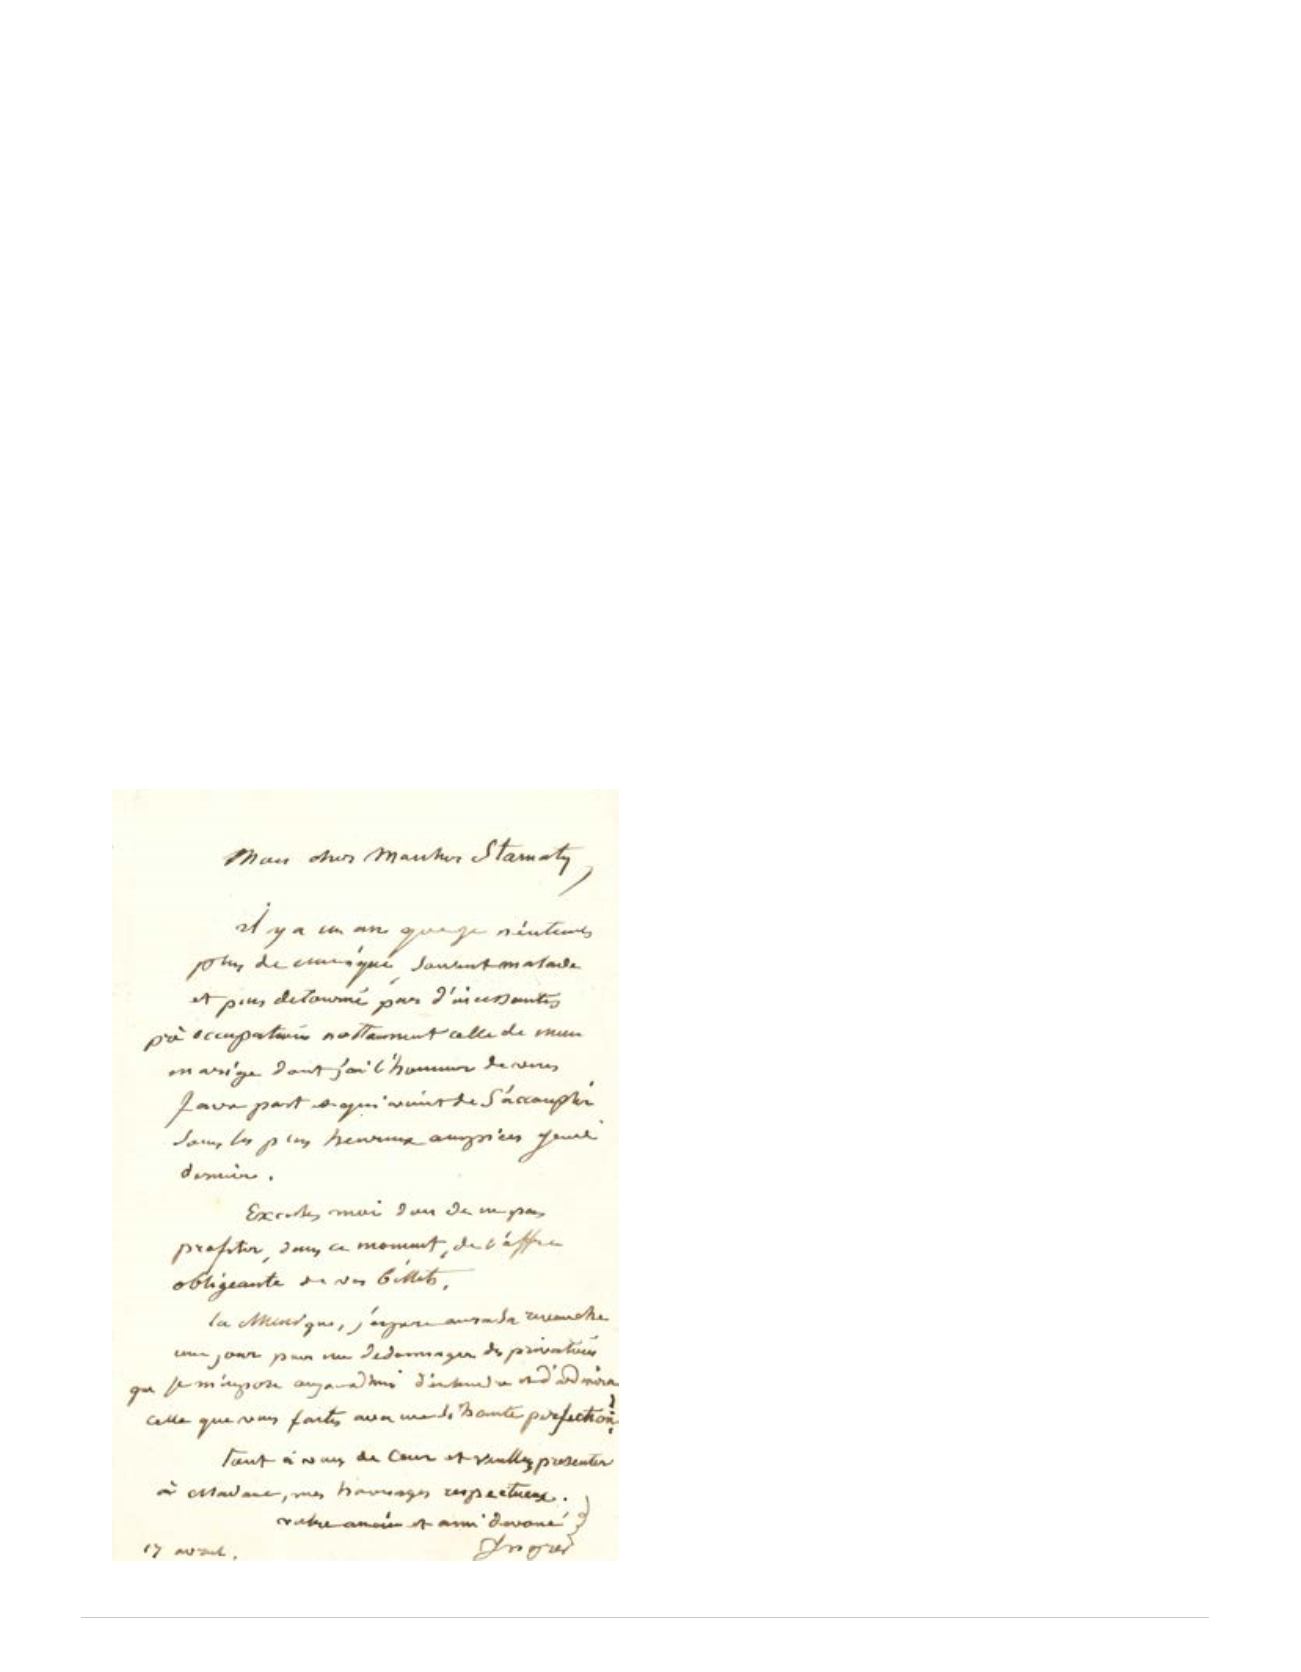 Mon cher Monsieur Stamaty,
il y a un an que je n'entends
plus de musique, souvent malade
et plus detourné par d'incessantes
préoccupations nottamment celle de mon
mariage dont j'ai l'honneur de vous
faire part et qui vient de s'accomplir
sous les plus heureux auspices jeudi
dernier.
Excusez moi donc de ne pas
profiter, dans ce moment, de l'offre
obligeante de vos billets.
la Musique, j'espere aura sa revanche
un jour pour me dedommager des privations
que je m'impose aujourd'hui d'entendre et d'admirer
celle que vous faites avec une si haute perfection.
Tout à vous de Coeur et veuillez presenter
à Madame, mes hommages respectueux.
votre ancien et ami devoué
17 avril. Ingres